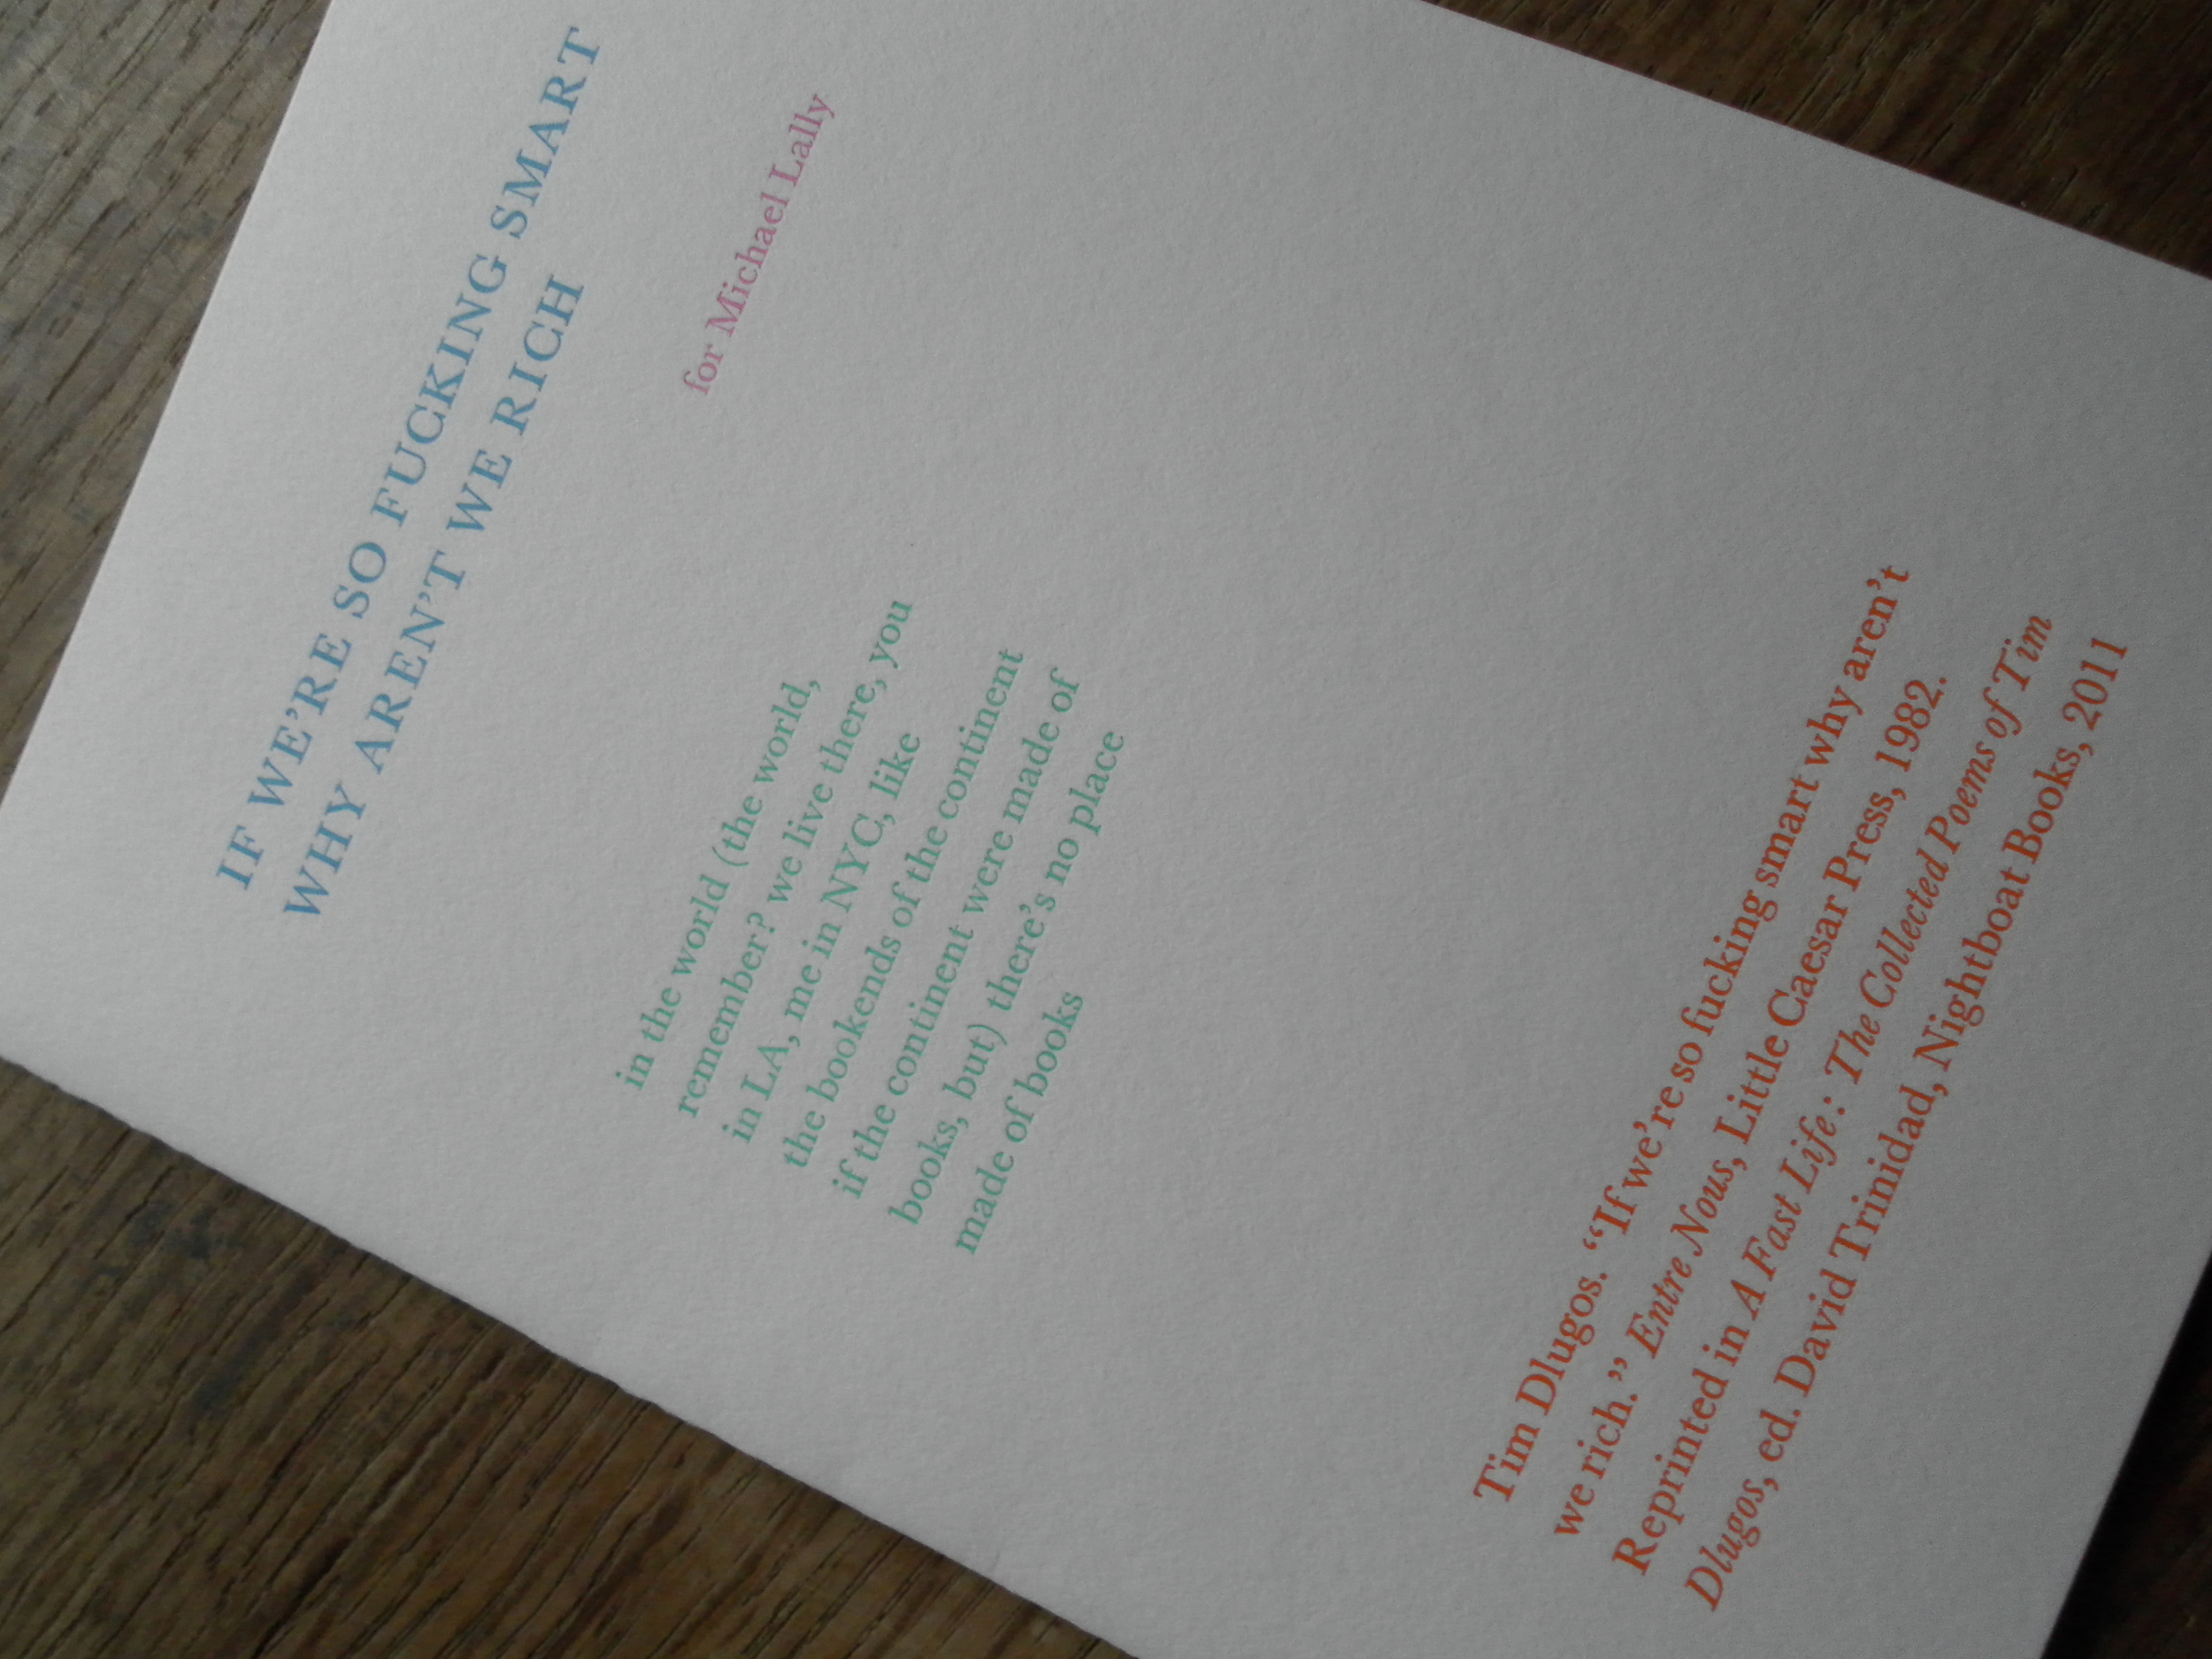 IF WE’RE SO FUCKING SMART
WHY AREN’T WE RICH
for Michael Lally
in the world (the world,
remember? we live there, you
in LA, me in NYC, like
the bookends of the continent
if the continent were made of
books, but) there’s no place
made of books
Tim Dlugos. “If we’re so fucking smart why aren’t
we rich.” Entre Nous, Little Caesar Press, 1982.
Reprinted in A Fast Life: The Collected Poems of Tim
Dlugos, ed. David Trinidad, Nightboat Books, 2011